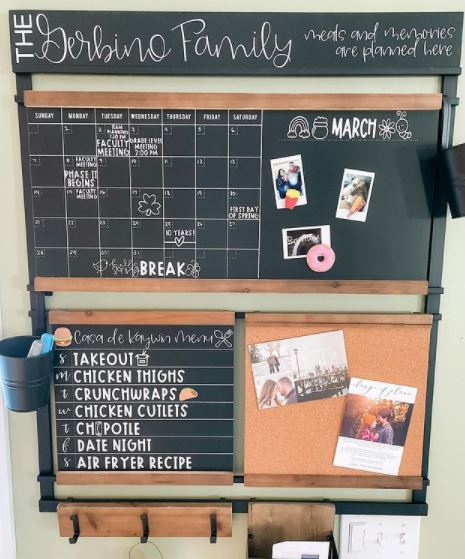 THE Gerbino Family
meals and memories
are planned here
SUNDAY MONDAY TUESDAY WEDNESDAY THURSDAY FRIDAY SATURDAY
MARCH
1 2 3 4 5 6
TEAM PLANNING
FACULTY MEETING
GRADE LEVEL MEETING
2:00 PM
7 8 9 10 11 12 13
FACULTY MEETING
PHASE IT BEGINS
14 15 16 17 18 19 20
FACULTY MEETING
FIRST DAY OF SPRING
21 22 23 24 25 26 27
10 YEARS!
28 29 30 31
hello spring BREAK
Casa de Kaywin menu
S TAKEOUT
M CHICKEN THIGHS
t CRUNCHWRAPS
w CHICKEN CUTLETS
t CHIPOTLE
f DATE NIGHT
S AIR FRYER RECIPE
change of plans